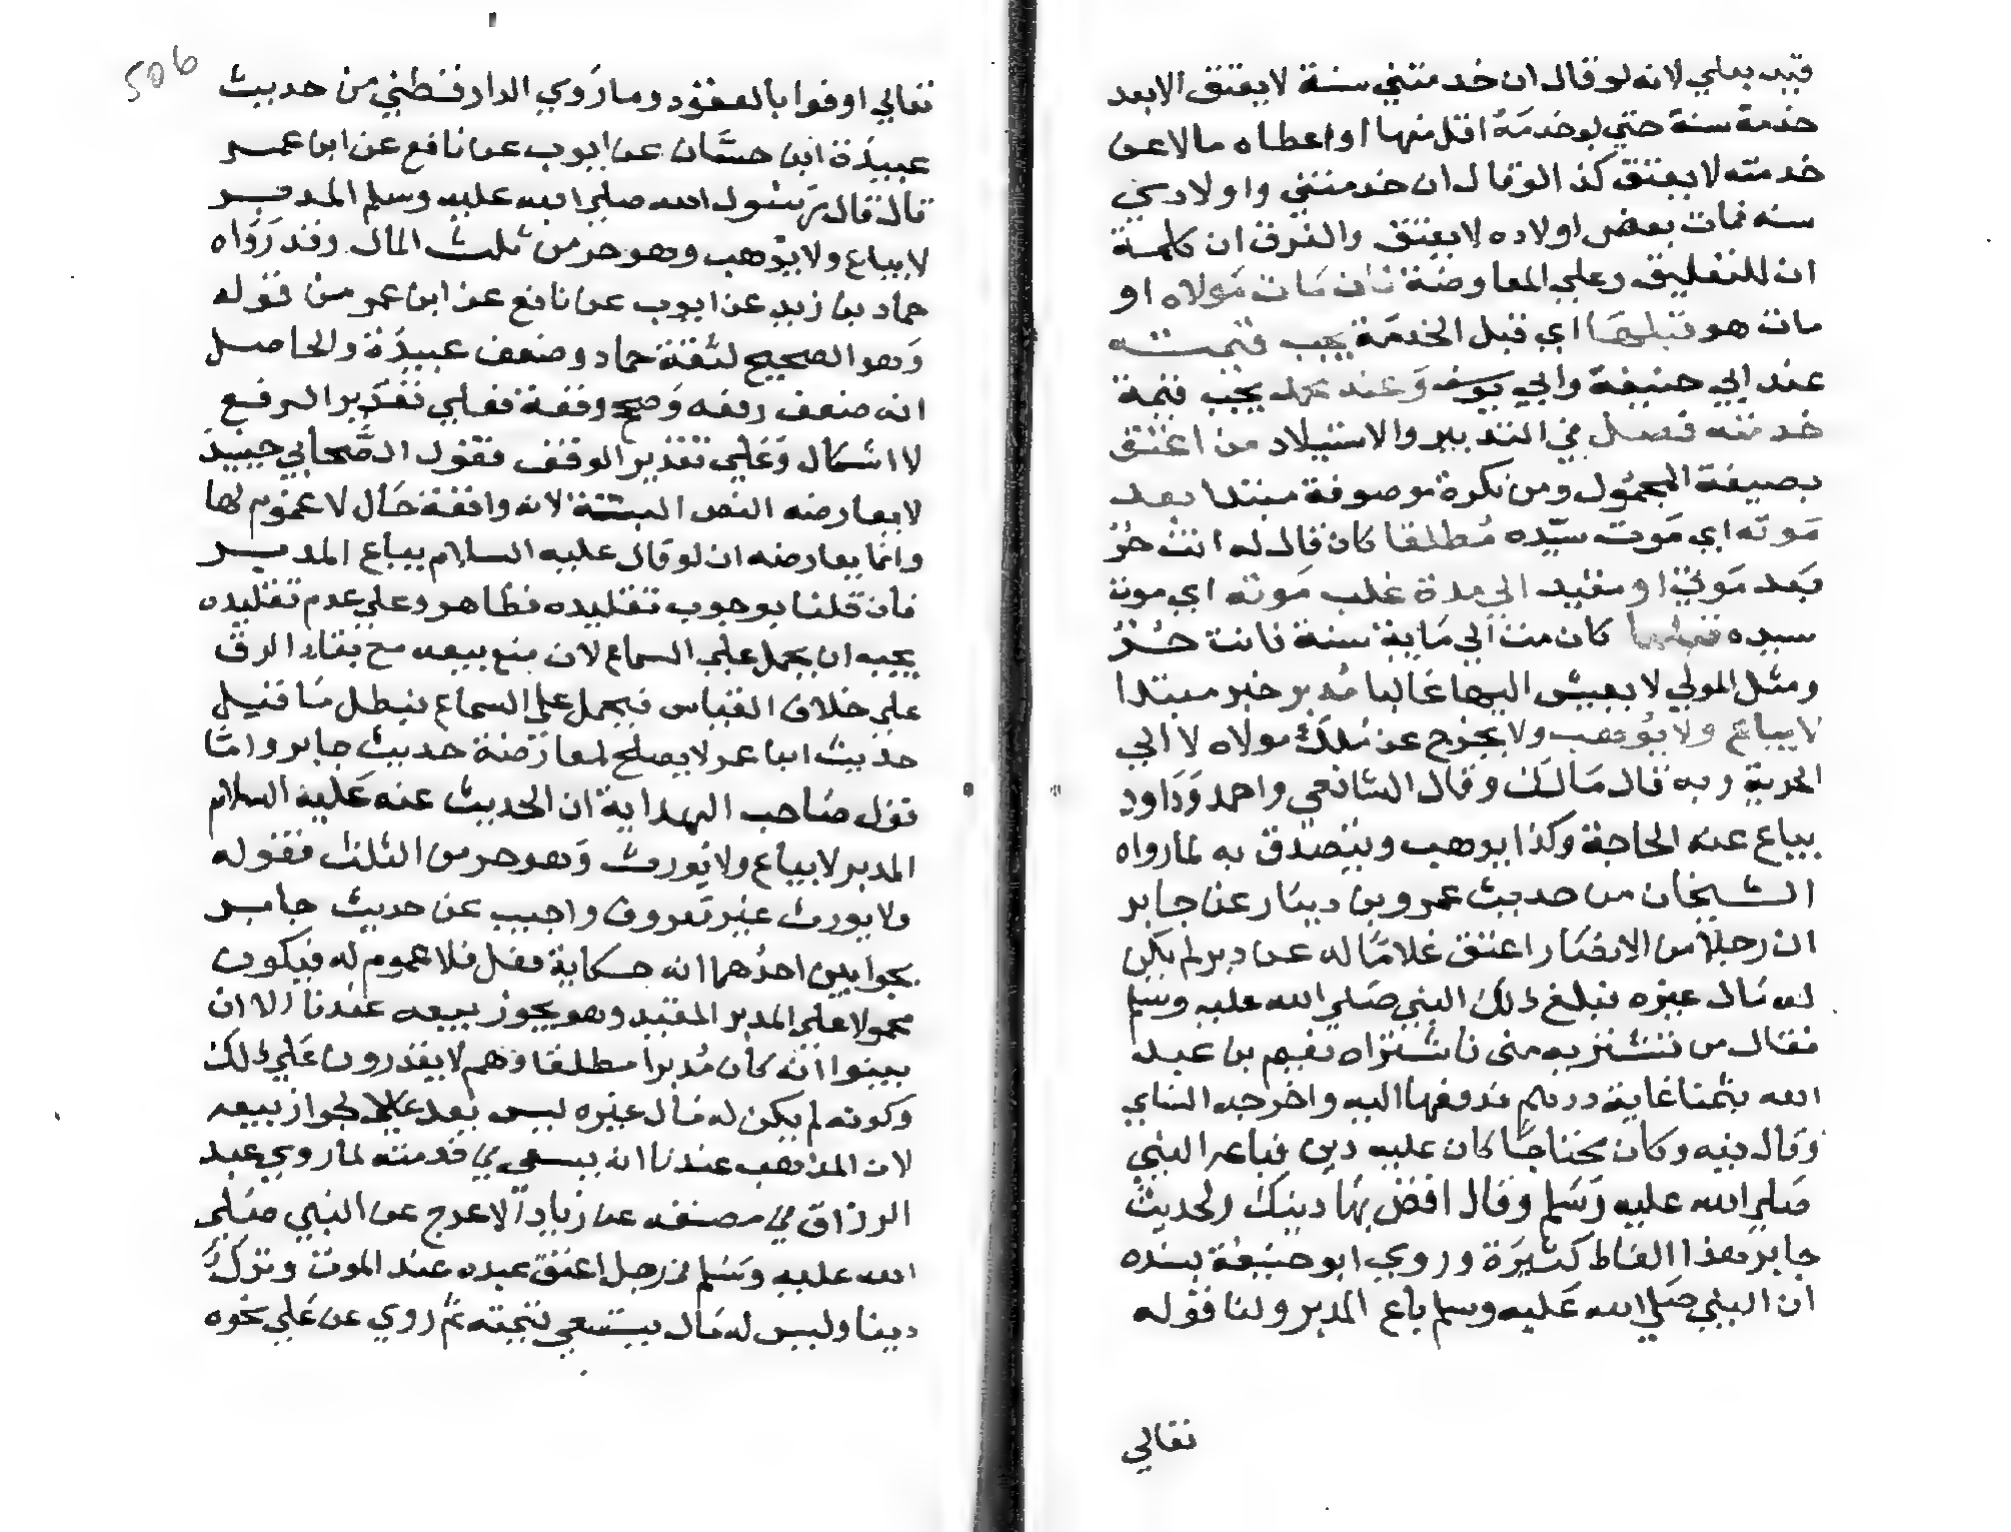 قيد بعلي لانه لو قال ان خدمتني سنة لا يعتق الا بعد
خدمة سنة حتي لو خدمه اقل منها او اعطاه مالا عن
خدمته لا يعتق كذا لو قال ان خدمتني واولادي
سنه فمات بعض اولاده لا يعتق والفرق ان كلمة
ان للتعليق وعلي المعاوضة فان مات مولاه او
مات هو قبلها اي قبل الخدمة يجب قيمته
عند ابي حنيفة وابي يوسف وعند محمد يجب قيمة
خدمته فصل في التدبير والاستيلاد من اعتق
بصيغة المجهول ومن نكرة موصوفة مبتدا بعد
موته اي موت سيده مطلقا كان قال له انت حر
بعد موتي او مقيد الي مدة غلب موته اي موت
سيده قبلها كان مت الي ماية سنة فانت حر
ومثل المولي لا يعيش اليها غالبا مدبر خبر مبتدا
لا يباع ولا يوهب ولا يخرج عن ملك مولاه لا الي
الحرية وبه قال مالك وقال الشافعي واحمد وداود
يباع عند الحاجة وكذا يوهب ويتصدق به لما رواه
الشيخان من حديث عمرو بن دينار عن جابر
ان رجلا من الانصار اعتق غلاما له عن دبر لم يكن
له مال غيره فبلغ ذلك النبي صلي الله عليه وسلم
فقال من تشتريه مني فاشتراه نعيم بن عبد
الله بثمنماية درهم فدفعها اليه واخرجه النساي
وقال فيه وكان محتاجا كان عليه دين فباعه النبي
صلي الله عليه وسلم وقال اقض بها دينك ولحديث
جابر هذا الفاظ كثيرة وروي ابو حنيفة بسنده
ان النبي صلي الله عليه وسلم باع المدبر ولنا قوله
تعالي
506
تعالي اوفوا بالعقود وما روي الدارقطني من حديث
عبيدة ابن حسان عن ايوب عن نافع عن ابن عمر
قال قال رسول الله صلي الله عليه وسلم المدبر
لا يباع ولا يوهب وهو حر من ثلث المال وقد رواه
حماد بن زيد عن ايوب عن نافع عن ابن عمر من قوله
وهو الصحيح لثقة حماد وضعف عبيدة والحاصل
انه ضعف رفعه وصح وقفه فعلي تقدير الرفع
لا اشكال وعلي تقدير الوقف فقول الصحابي حينيذ
لا يعارضه النص البتة لانه واقعة حال لا عموم لها
وانما يعارضه ان لو قال عليه السلام يباع المدبر
فان قلنا بوجوب تقليده فظاهر وعلي عدم تقليده
يجب ان يحمل علي السماع لان منع بيعه مع بقاء الرق
علي خلاف القياس فيحمل علي السماع فبطل ما قيل
حديث ابن عمر لا يصلح لمعارضة حديث جابر واما
قول صاحب الهداية ان الحديث عنه عليه السلام
المدبر لا يباع ولا يورث وهو حر من الثلث فقوله
ولا يورث غير معروف واجيب عن حديث جابر
بجوابين احدهما انه حكاية فعل فلا عموم له فيكون
محمولا علي المدبر المقيد وهو يجوز بيعه عندنا الا ان
يبينوا انه كان مدبرا مطلقا وهم لا يقدرون علي ذلك
وكونه لم يكن له مال غيره ليس بعد علة لجواز بيعه
لان المذهب عندنا انه يسعي في قيمته لما روي عبد
الرزاق في مصنفه عن زياد الاعرج عن النبي صلي
الله عليه وسلم في رجل اعتق عبده عند الموت وترك
دينا وليس له مال يستسعي في قيمته ثم روي عن علي نحوه